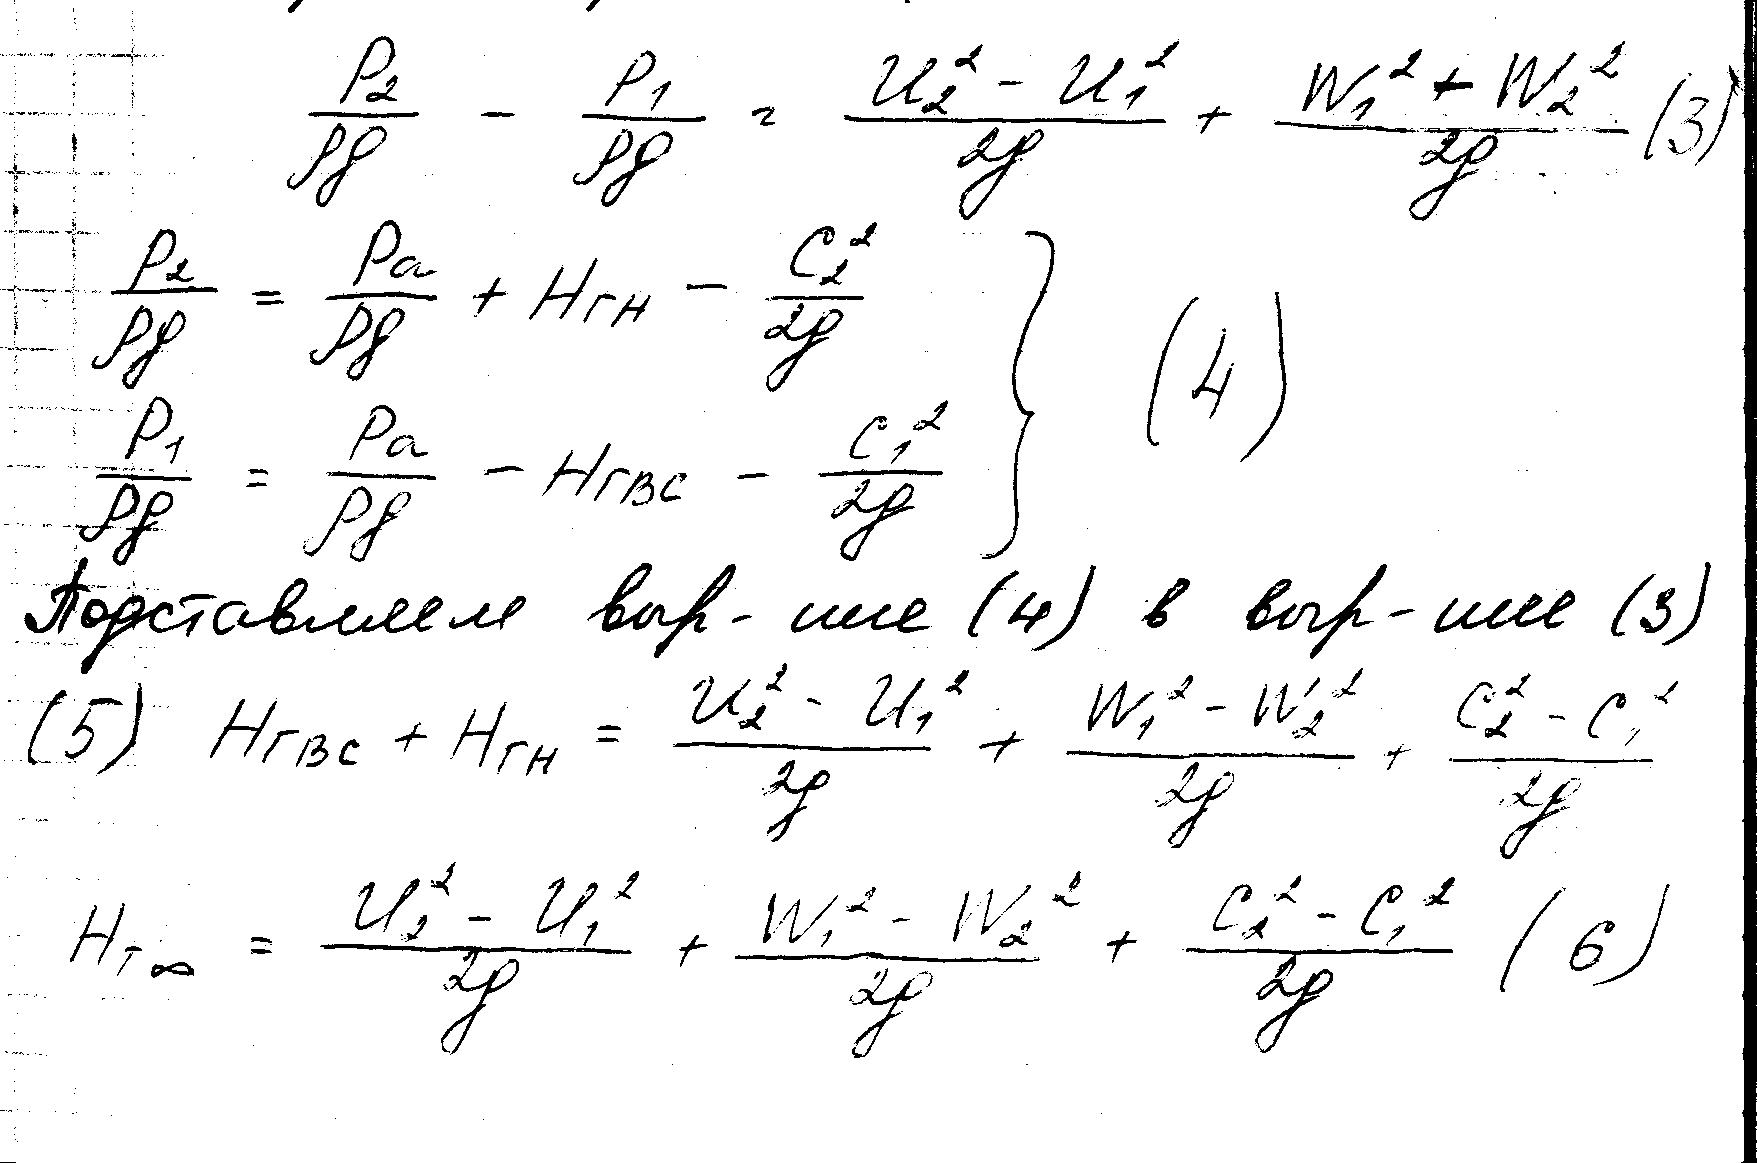 P₂/ρg - P₁/ρg = (U₂² - U₁²)/2g + (W₁² + W₂²)/2g (3)
P₂/ρg = Pa/ρg + Hгн - C₂²/2g
P₁/ρg = Pa/ρg - Hгвс - C₁²/2g } (4)
Подставляем выр-ние (4) в выр-ние (3)
(5) Hгвс + Hгн = (U₂² - U₁²)/2g + (W₁² - W₂²)/2g + (C₂² - C₁²)/2g
Hт∞ = (U₂² - U₁²)/2g + (W₁² - W₂²)/2g + (C₂² - C₁²)/2g (6)